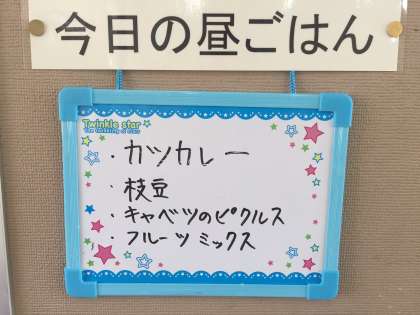 今日の昼ごはん
Twinkle star
・カツカレー
・枝豆
・キャベツのピクルス
・フルーツミックス